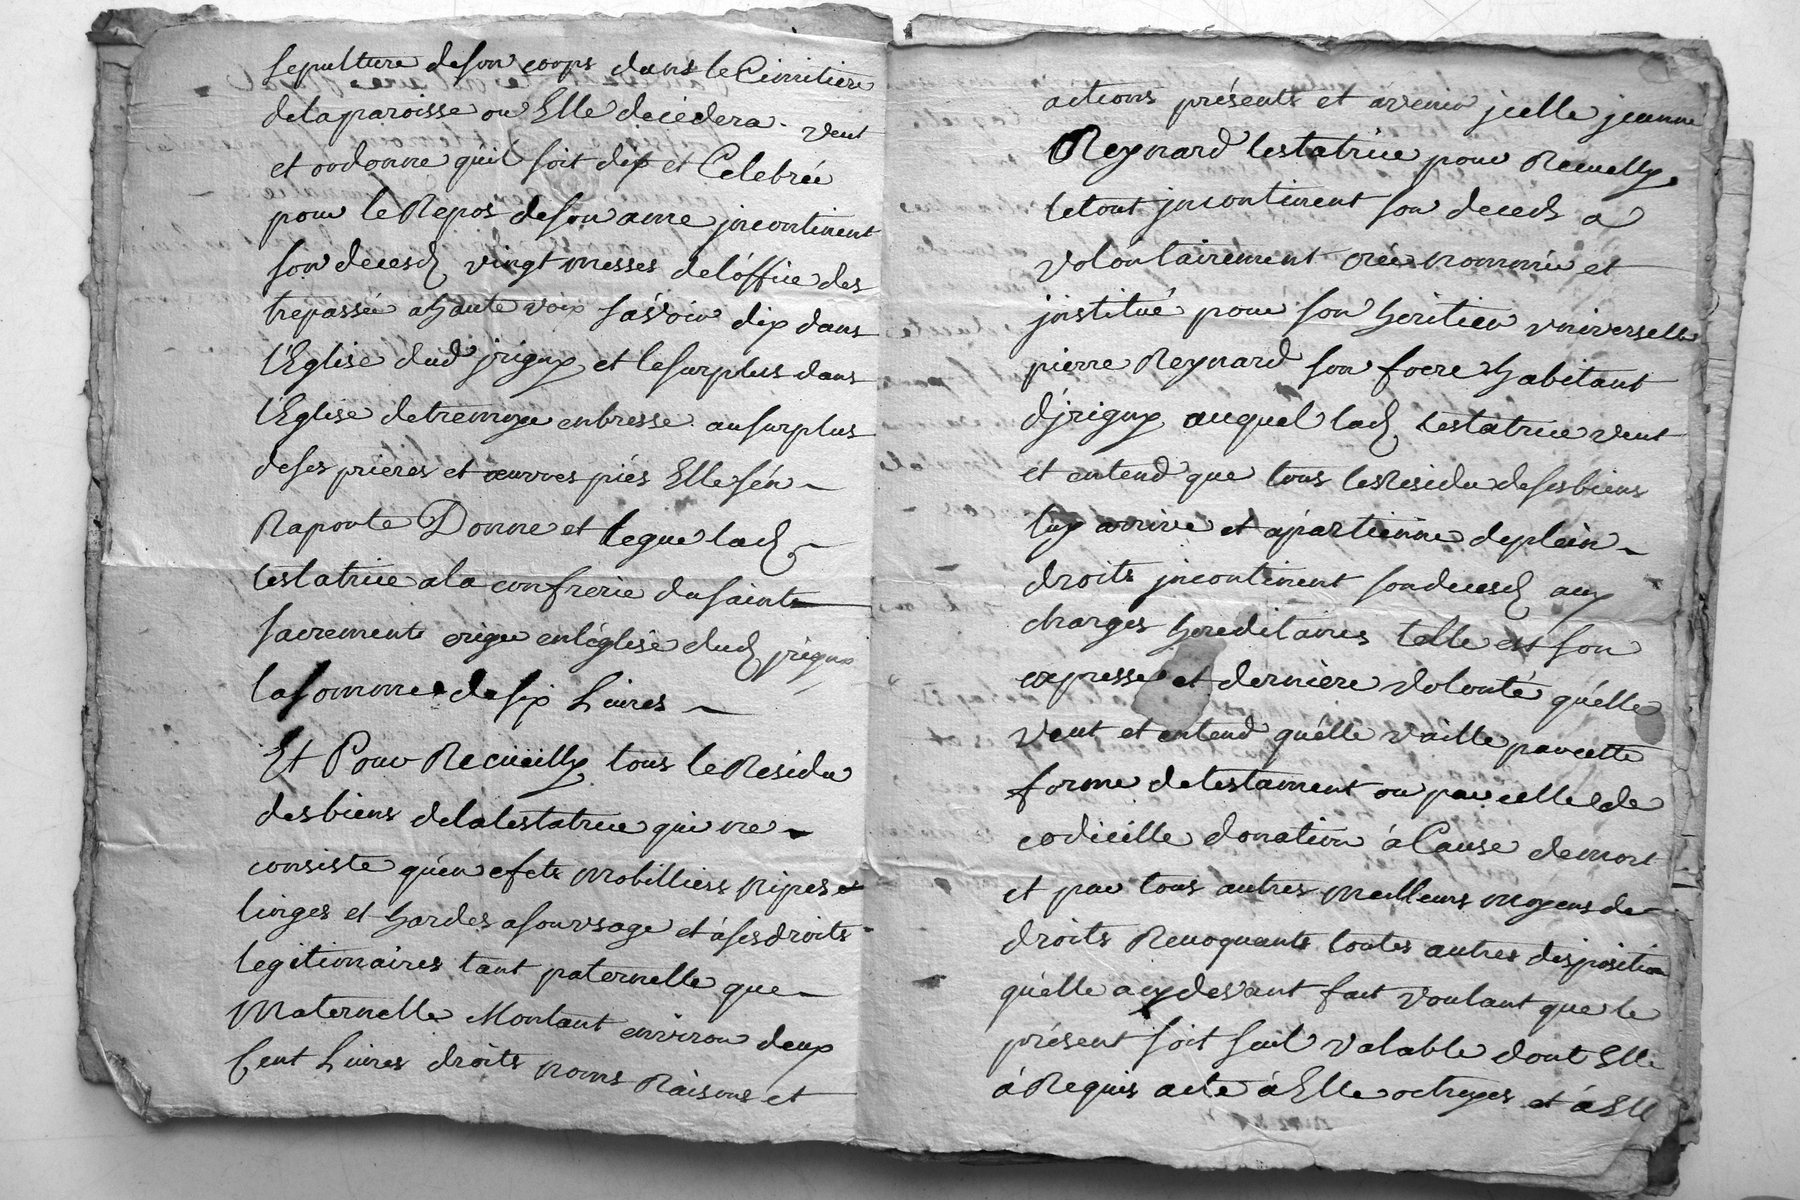 sepulture deson corps dans le Cimitiere
delaparoisse ou Elle decedera. veut
et ordonne quil soit dix et Celebréé
pour le Repos deson ame jncontinent
son decesd vingt messes deloffice des
trepassée ahaute voix savoir dix dans
l'Eglise dud jrigny et lesurplus dans
l'Eglise detremoye enbresse ausurplus
deses prieres et œuvres piés Elle sén
Raporte Donne et legue lad
testatrice ala confrerie dusainte
sacrement erigee enléglise dud jrigny
lasomme desix Livres
Et Pour Recueilly tous le Residu
desbiens delatestatrice qui ne
consiste quén efets mobilliers nipes
linges et hardes asonusage et áses droits
legitionaires tant paternelle que
Maternelle Montant environ deux
Cent Livres droits noms Raisons et
actions présents et avenir jcelle jeanne
Reynard testatrice pour Recuelly
letout jncontinent son decesd a
volontairement créé nommée et
jnstitué pour son heritier vniverselle
pierre Reynard son frere habitant
djrigny auquel lad testatrice veut
et entend que tous lesResidu desesbiens
luy arrive et apartienne deplein
droits jncontinent sondecesd aux
charges hereditaires telle est son
expresse et derniere volonté quélle
veut et entend quélle vaille parcette
forme detestament ou par celle de
codicille donation áCause demort
et par tous autres meilleurs moyens de
droits Revoquants toutes autres disposition
quélle acydevant fait voulant que le
présent soit seul valable dont Elle
á Requis acte á Elle octroyes et á Ell